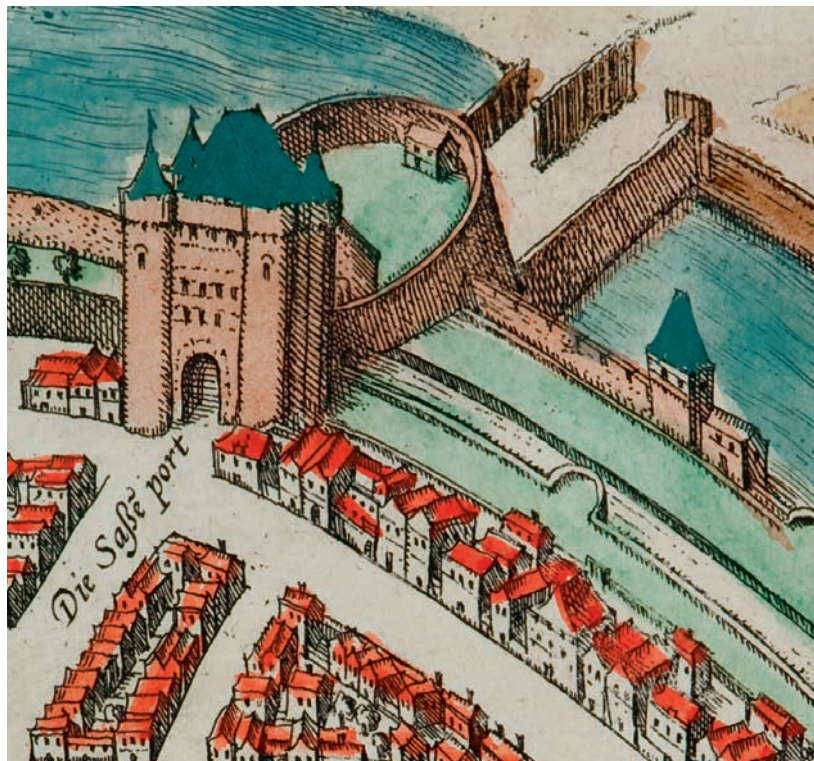 Die Saßē port